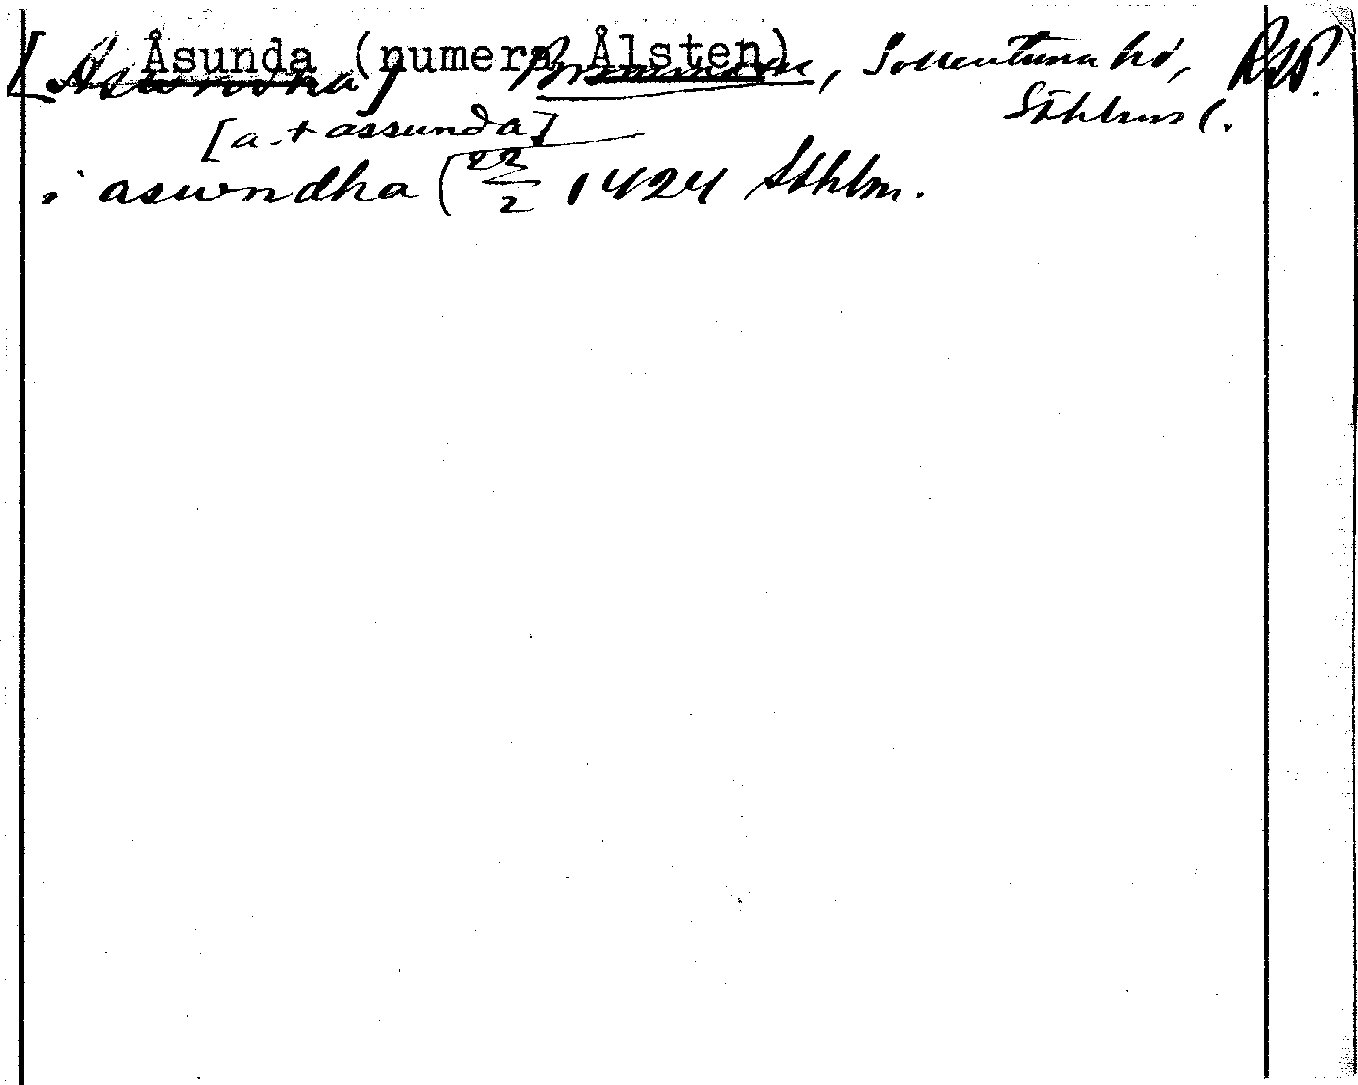 [Aswndha] Åsunda (numera Ålsten) Bromma sn, Sollentuna hd, RAP.
Sthlms l.
[a.t assunda]
i aswndha (22/2 1424 Sthlm.